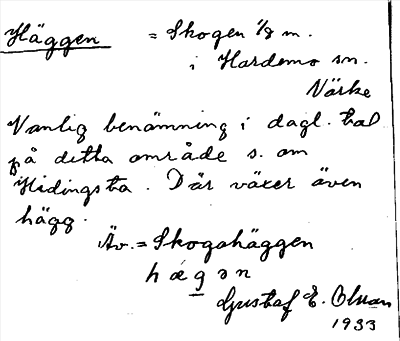 Häggen = Skogen 1/8 m.
i Hardemo sn.
Närke
Vanlig benämning i dagl. tal
på detta område s. om
Hidingsta. Där växer även
hägg.
Äv. = Skogahäggen
hǽgən
Gustaf E.
1933